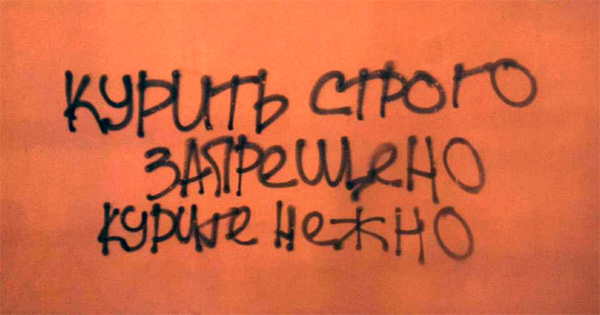 КУРИТЬ СТРОГО
ЗАПРЕЩЕНО
КУРИТЕ НЕЖНО